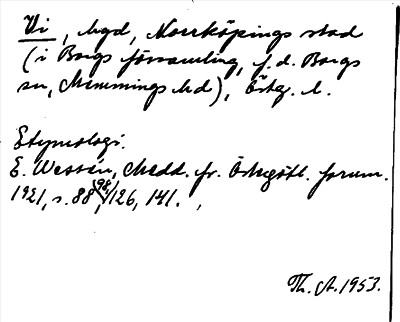 Vi, bygd, Norrköpings stad
(i Borgs församling, f. d. Borgs
sn, Memmings hd), Östg. l.
Etymologi:
E. Wessén, Medd. fr. Östergötl. fornm.
1921, s. 88, (98,) 126, 141.,
Th. A. 1953.